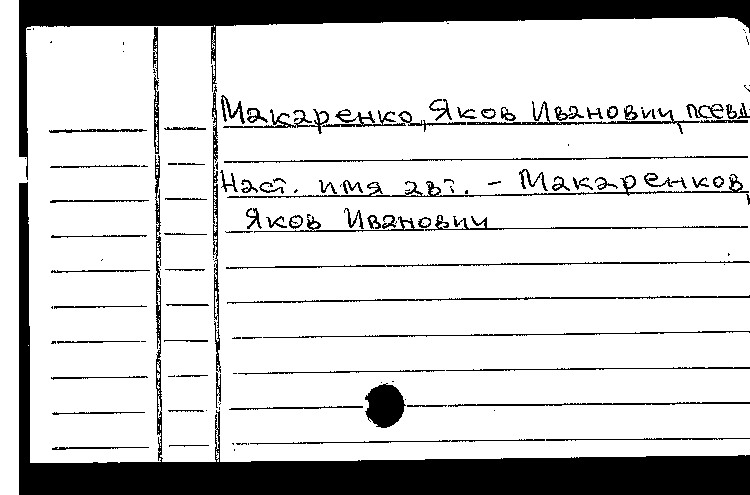 Макаренко, Яков Иванович, псевд
Наст. имя авт. - Макаренков,
Яков Иванович